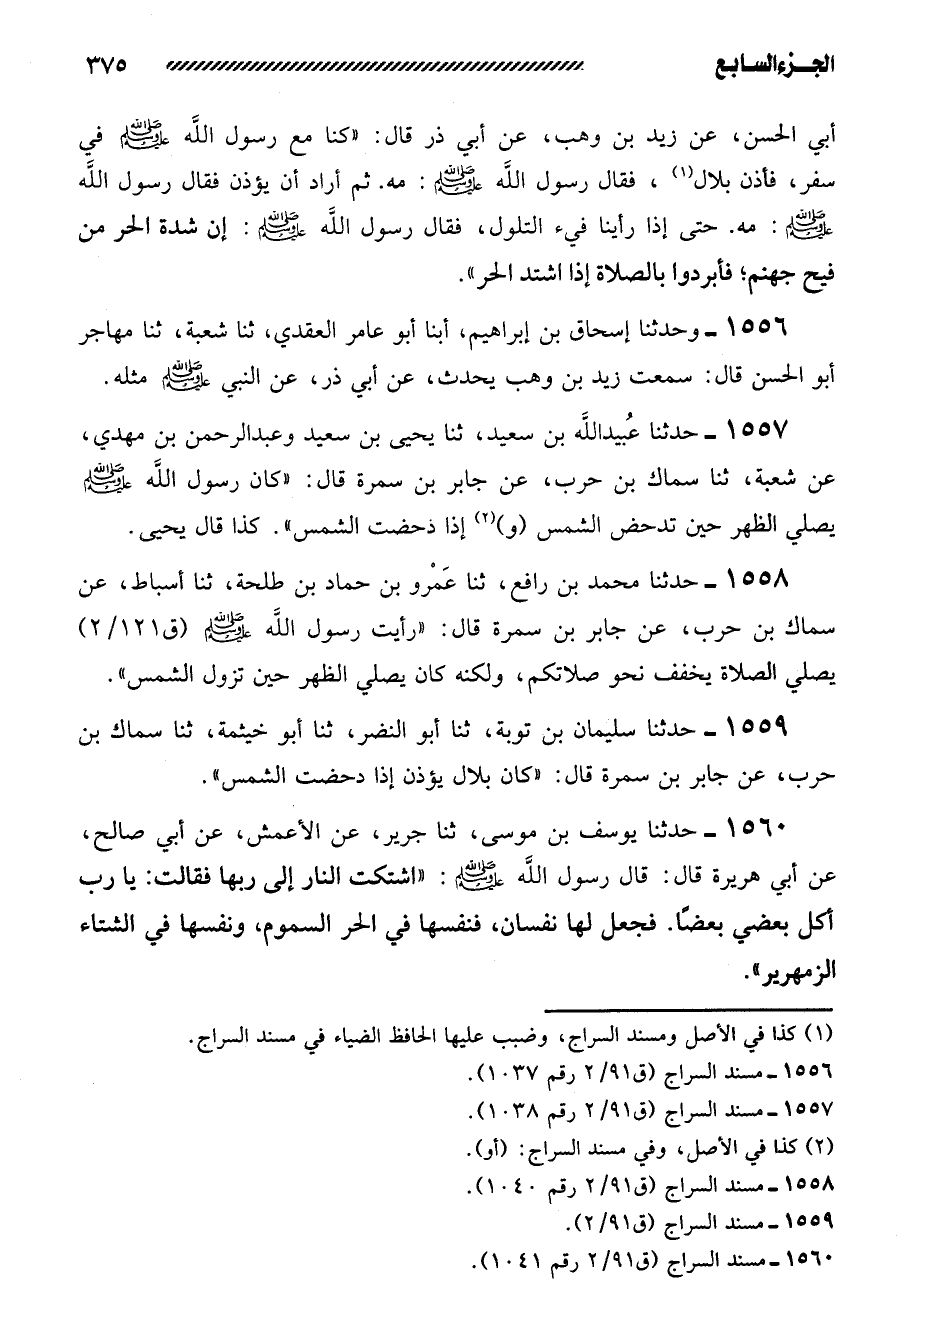 الجزء السابع ٣٧٥
أبي الحسن، عن زيد بن وهب، عن أبي ذر قال: «كنا مع رسول اللَّه ﷺ في
سفر، فأذن بلال(١) ، فقال رسول اللَّه ﷺ : مه. ثم أراد أن يؤذن فقال رسول اللَّه
ﷺ : مه. حتى إذا رأينا فيء التلول، فقال رسول اللَّه ﷺ : إن شدة الحر من
فيح جهنم؛ فأبردوا بالصلاة إذا اشتد الحر».
١٥٥٦ - وحدثنا إسحاق بن إبراهيم، أبنا أبو عامر العقدي، ثنا شعبة، ثنا مهاجر
أبو الحسن قال: سمعت زيد بن وهب يحدث، عن أبي ذر، عن النبي ﷺ مثله.
١٥٥٧ - حدثنا عُبيداللَّه بن سعيد، ثنا يحيى بن سعيد وعبدالرحمن بن مهدي،
عن شعبة، ثنا سماك بن حرب، عن جابر بن سمرة قال: «كان رسول اللَّه ﷺ
يصلي الظهر حين تدحض الشمس (و)(٢) إذا دحضت الشمس». كذا قال يحيى.
١٥٥٨ - حدثنا محمد بن رافع، ثنا عَمْرو بن حماد بن طلحة، ثنا أسباط، عن
سماك بن حرب، عن جابر بن سمرة قال: «رأيت رسول اللَّه ﷺ (ق١٢١/ ٢)
يصلي الصلاة يخفف نحو صلاتكم، ولكنه كان يصلي الظهر حين تزول الشمس».
١٥٥٩ - حدثنا سليمان بن توبة، ثنا أبو النضر، ثنا أبو خيثمة، ثنا سماك بن
حرب، عن جابر بن سمرة قال: «كان بلال يؤذن إذا دحضت الشمس».
١٥٦٠ - حدثنا يوسف بن موسى، ثنا جرير، عن الأعمش، عن أبي صالح،
عن أبي هريرة قال: قال رسول اللَّه ﷺ : «اشتكت النار إلى ربها فقالت: يا رب
أكل بعضي بعضًا. فجعل لها نفسان، فنفسها في الحر السموم، ونفسها في الشتاء
الزمهرير».
(١) كذا في الأصل ومسند السراج، وضبب عليها الحافظ الضياء في مسند السراج.
١٥٥٦ - مسند السراج (ق٩١/ ٢ رقم ١٠٣٧).
١٥٥٧ - مسند السراج (ق٩١/ ٢ رقم ١٠٣٨).
(٢) كذا في الأصل، وفي مسند السراج: (أو).
١٥٥٨ - مسند السراج (ق٩١/ ٢ رقم ١٠٤٠).
١٥٥٩ - مسند السراج (ق٩١/ ٢).
١٥٦٠ - مسند السراج (ق٩١/ ٢ رقم ١٠٤١).